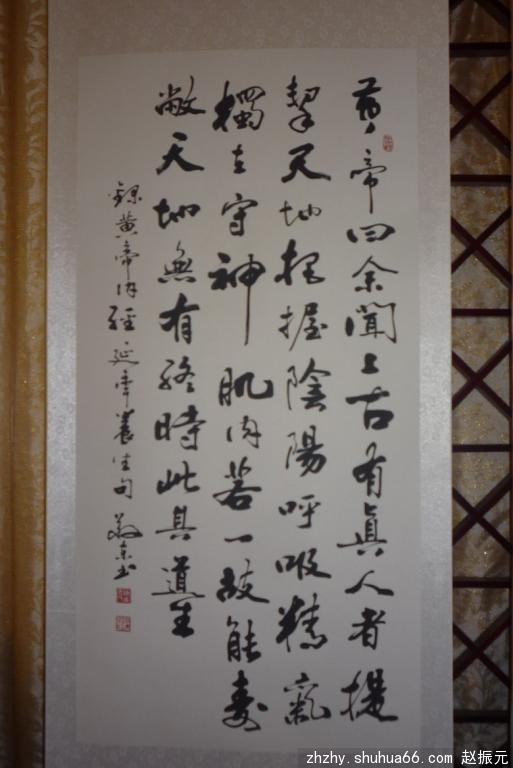 黄帝曰余闻上古有真人者提
挈天地把握陰陽呼吸精氣
獨立守神肌肉若一故能壽
敝天地無有終時此其道生
錄黄帝内經延年養生句 書
zhzhy.shuhua66.com 赵振元